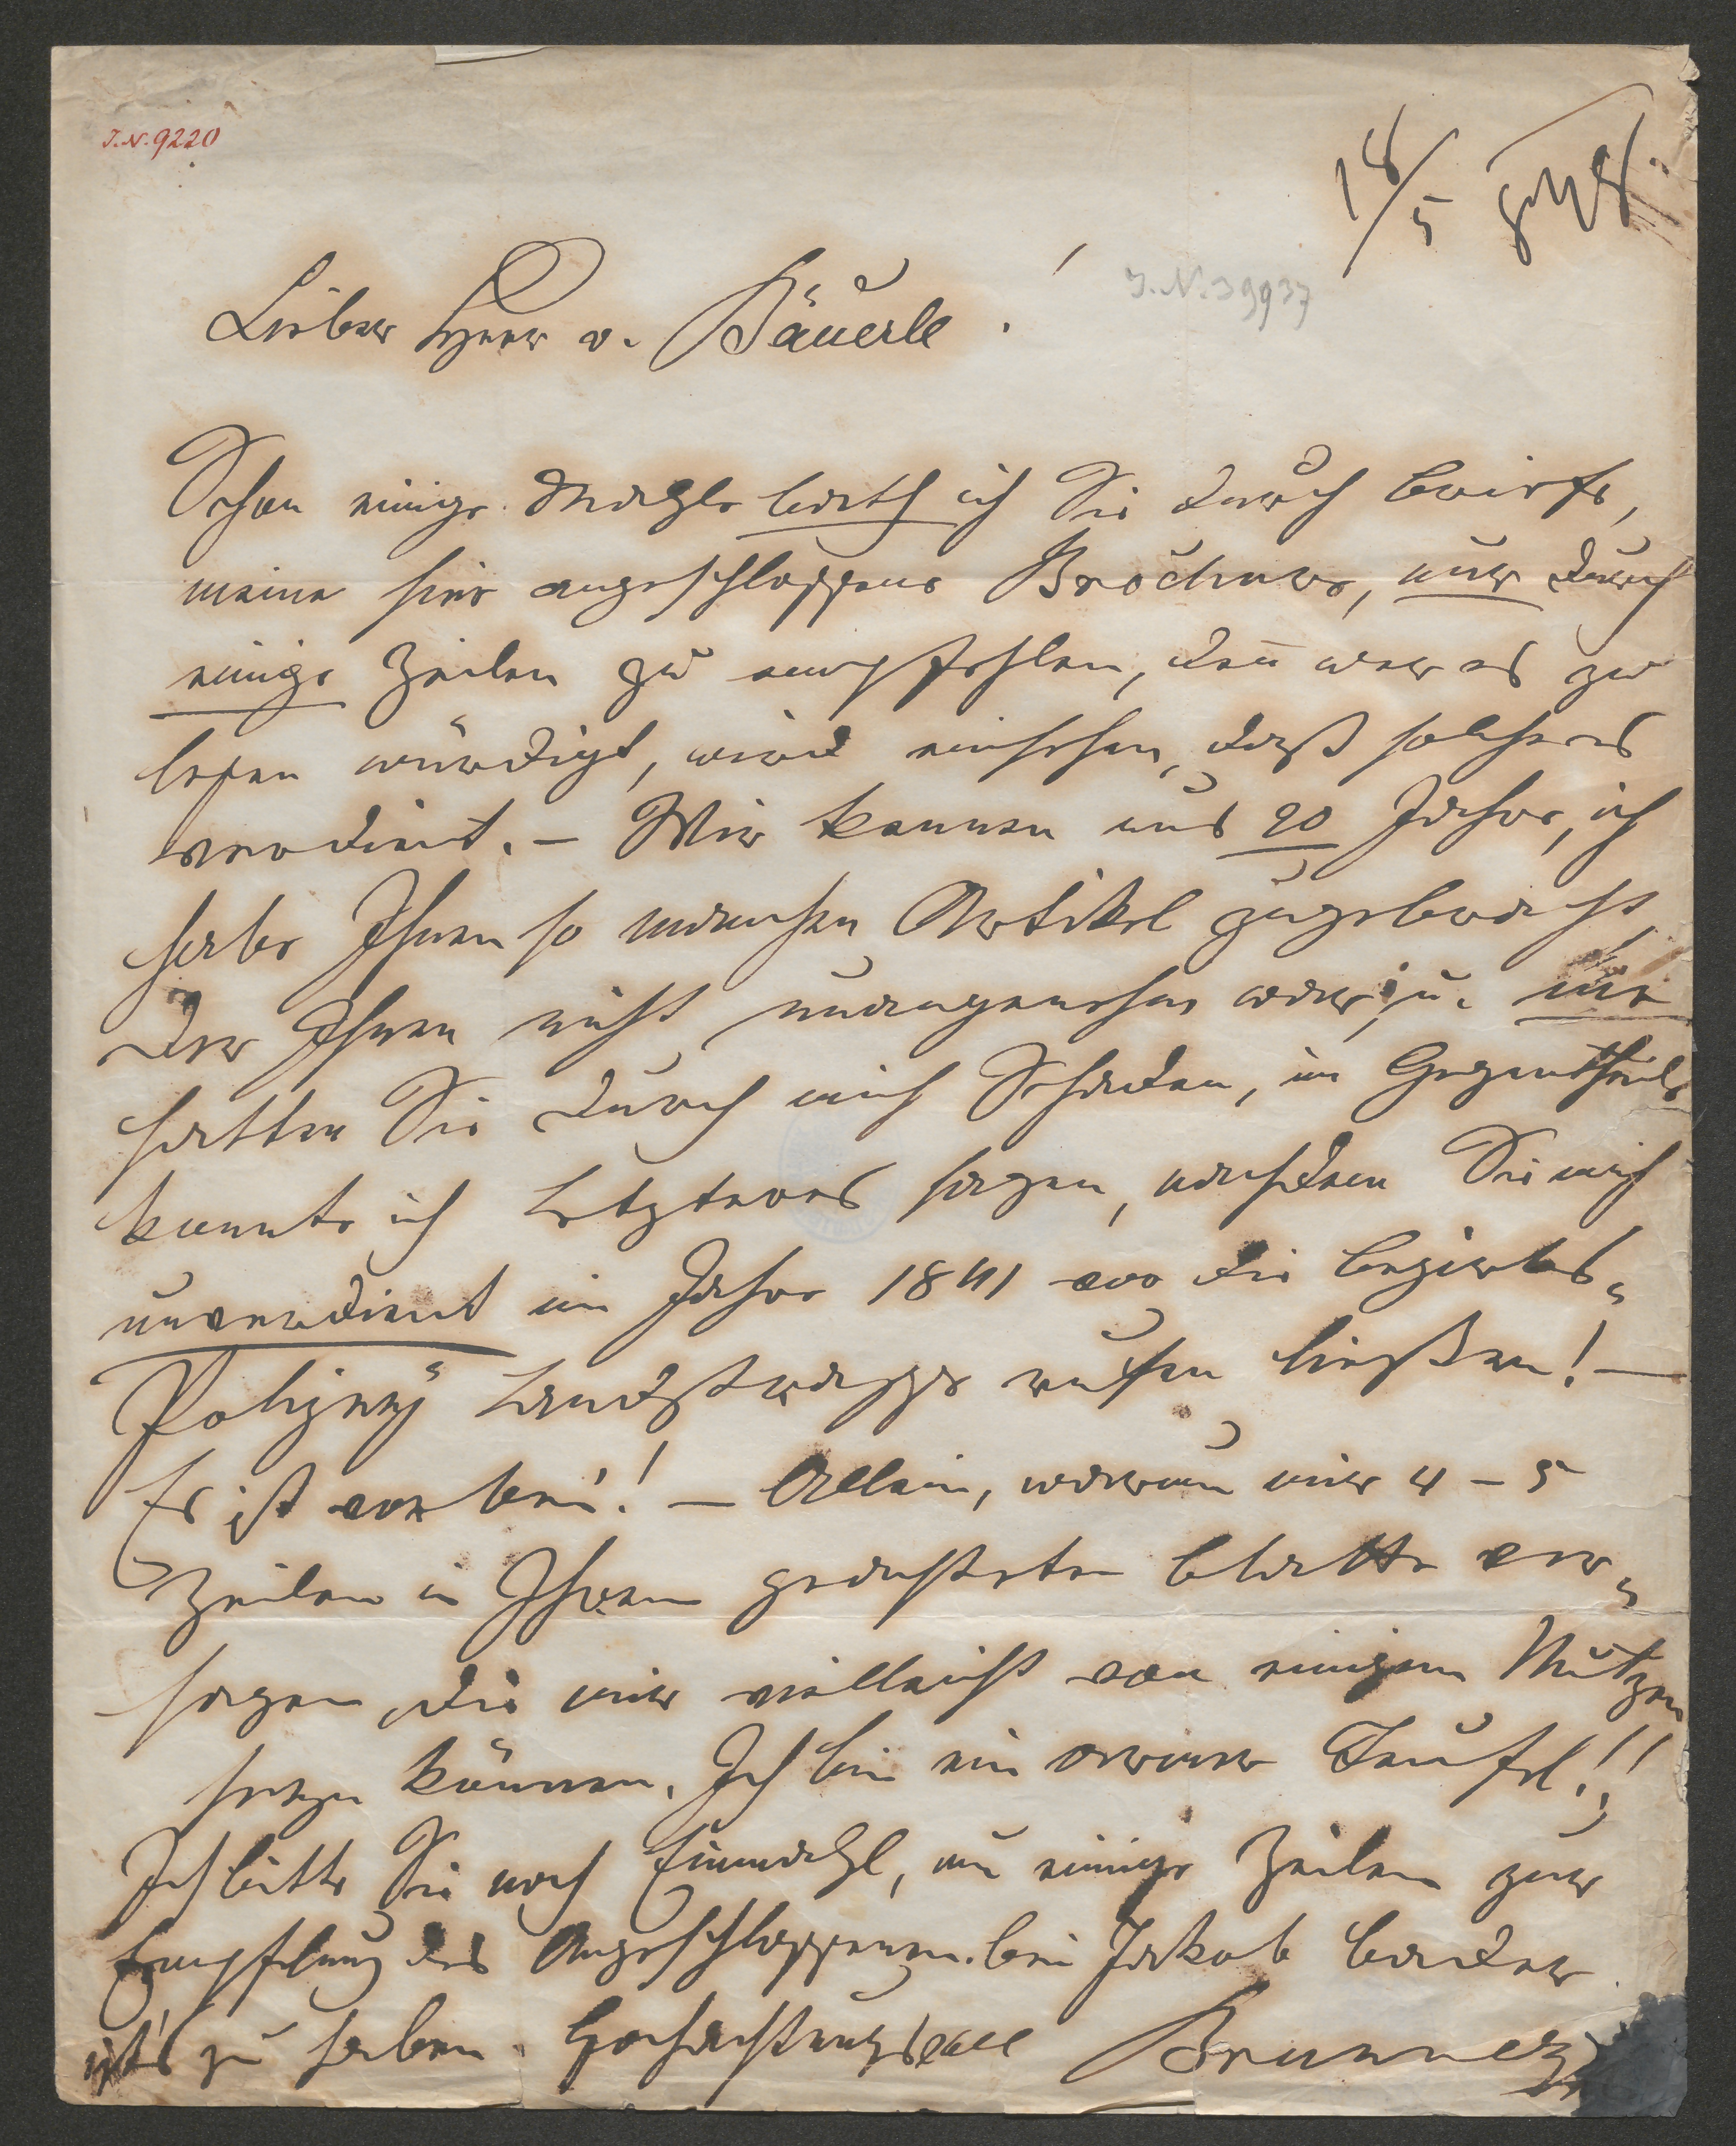 I.N. 9220
18/5
I.N. 39937
Lieber Herr v. Bäuerle!
Schon einige Mahle bath ich Sie durch Briefe,
meine hier angeschlossene Brochure, nur durch
einige Zeilen zu empfehlen, den̄ wer es zu
lesen würdigt, wird einsehen, daß solche es
verdient. – Wir kennen uns 20 Jahre, ich
habe Ihnen so manchen Artikel zugebracht,
der Ihnen nicht unangenehm war, u. nie
hatten Sie durch mich Schaden, im Gegentheile
konnte ich Letzteres sagen, nachdem Sie mich
unverdient im Jahre 1841 von die Bezirks„
Polizey Landstrasse rufen ließen! –
Es ist vorbei! – Allein, warum mir 4 – 5
Zeilen in Ihrem geachteten Blatte ver„
sagen, die mir vielleicht von einigem Nutzen
seyn können. Ich bin ein armer Teufel!!
Ich bitte Sie noch Einmahl, um einige Zeilen zur
Empfehlung des Angeschlossenen. bei Jakob Bader
ist's zu haben. Hochachtungsvoll Brunner